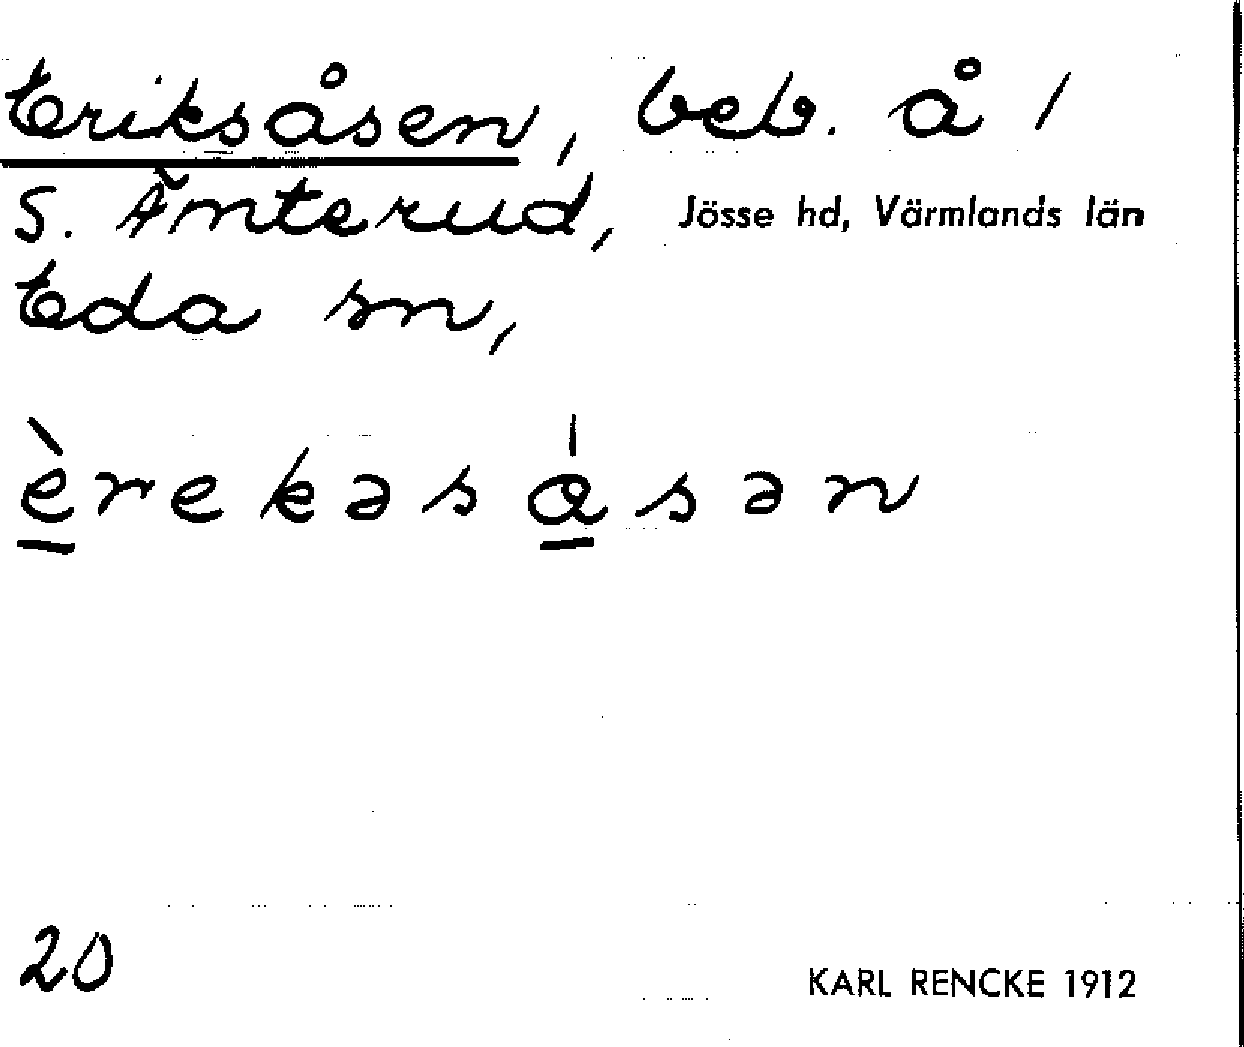 Eriksåsen, beb. å /
S. Ämterud, Jösse hd, Värmlands län
Eda sn,
èrekəsásən
20
KARL RENCKE 1912